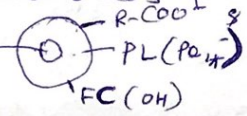 R-COO⁻
PL (PO₄⁻)
FC (OH)